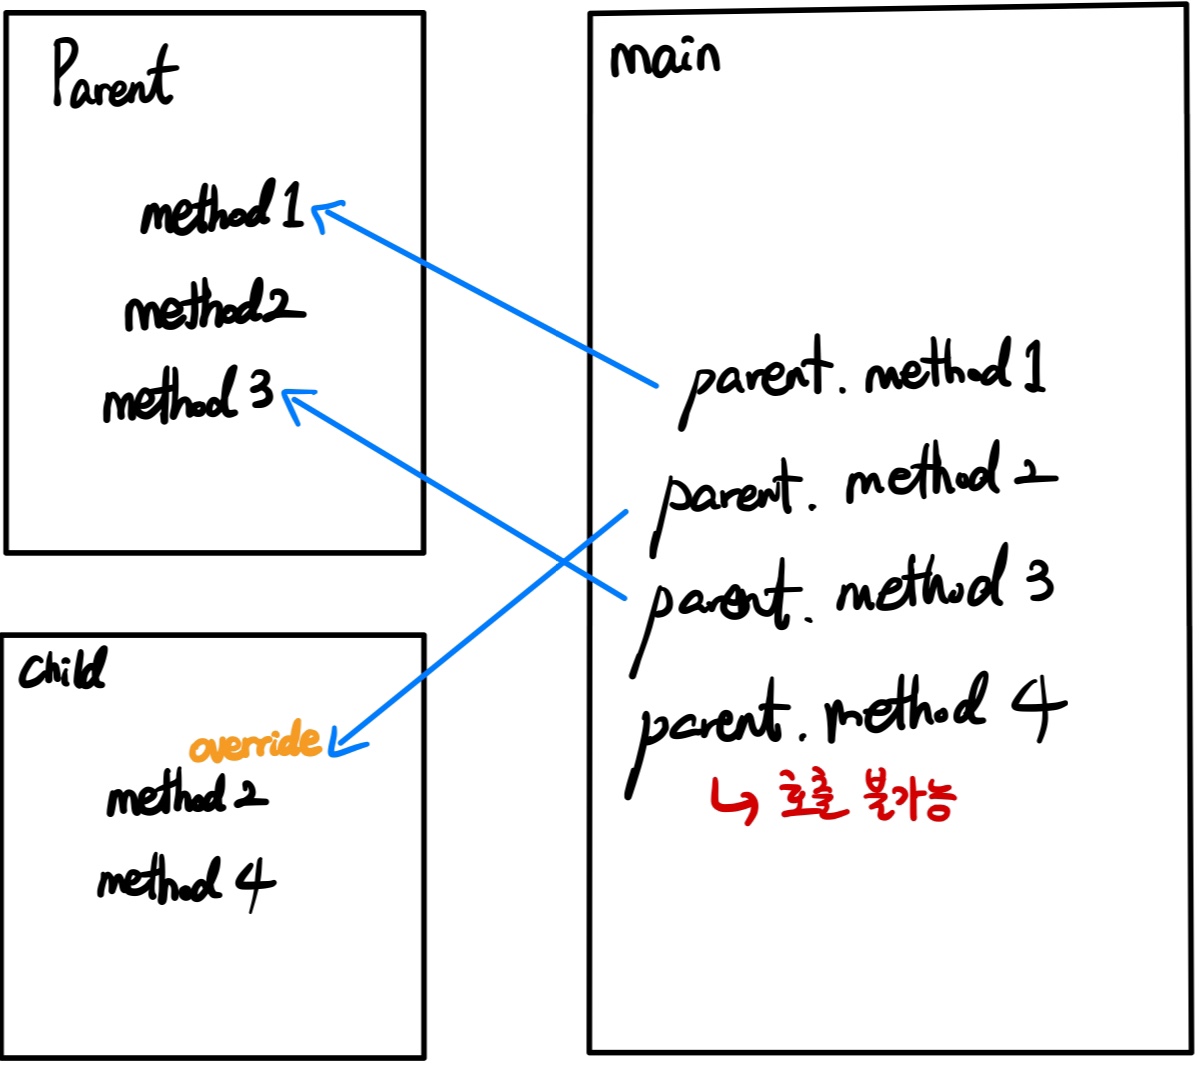 Parent
method 1
method2
method 3
child
override
method 2
method 4
main
parent. method 1
parent. method 2
parent. method 3
parent. method 4
↳ 호출 불가능